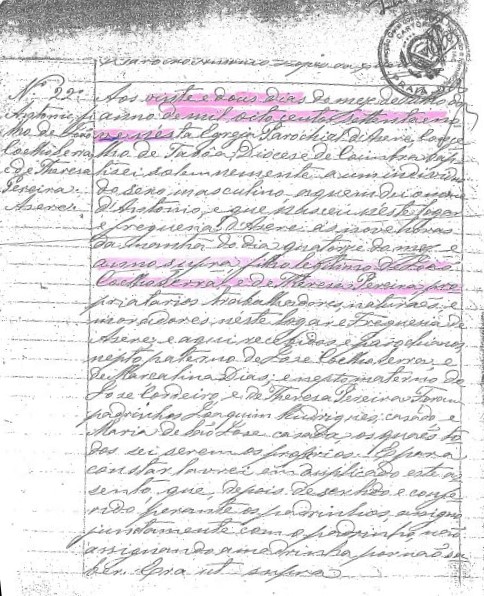 Nº 22
Antonio, fi
lho de João
Coelho Serra
e de Theresa
Pereira
Azere
Aos vinte e dous dias do mez de
anno de mil oito centos setenta e no
ve nesta Egreja Parochial d'Azere, Conce
lho de Tabôa, Diocese de Coimbra bap
tisei solemnemente a um individuo
do sexo masculino a quem dei o nome
d'Antonio, e que nasceu neste logar
e freguezia d'Azere ás nove horas
da manhã do dia quatorze do mez e
anno supra, filho legitimo de João
Coelho Serra, e de Theresa Pereira, pro
prietarios trabalhadores, naturaes, e
moradores neste logar e Freguezia de
Azere, e aqui recebidos, e parochianos
neto paterno de José Coelho Serra, e
de Marcelina Dias; e neto materno de
José Cordeiro, e de Theresa Pereira. Foram
padrinhos Joaquim Rodrigues, casado, e
Maria de São José casada os quaes to
dos sei serem os proprios. E para
constar lavrei em duplicado este as
sento, que, depois de ser lido e confe
rido perante os padrinhos, assigno
juntamente com o padrinho, não
assignando a madrinha por não sa
ber. Era ut supra